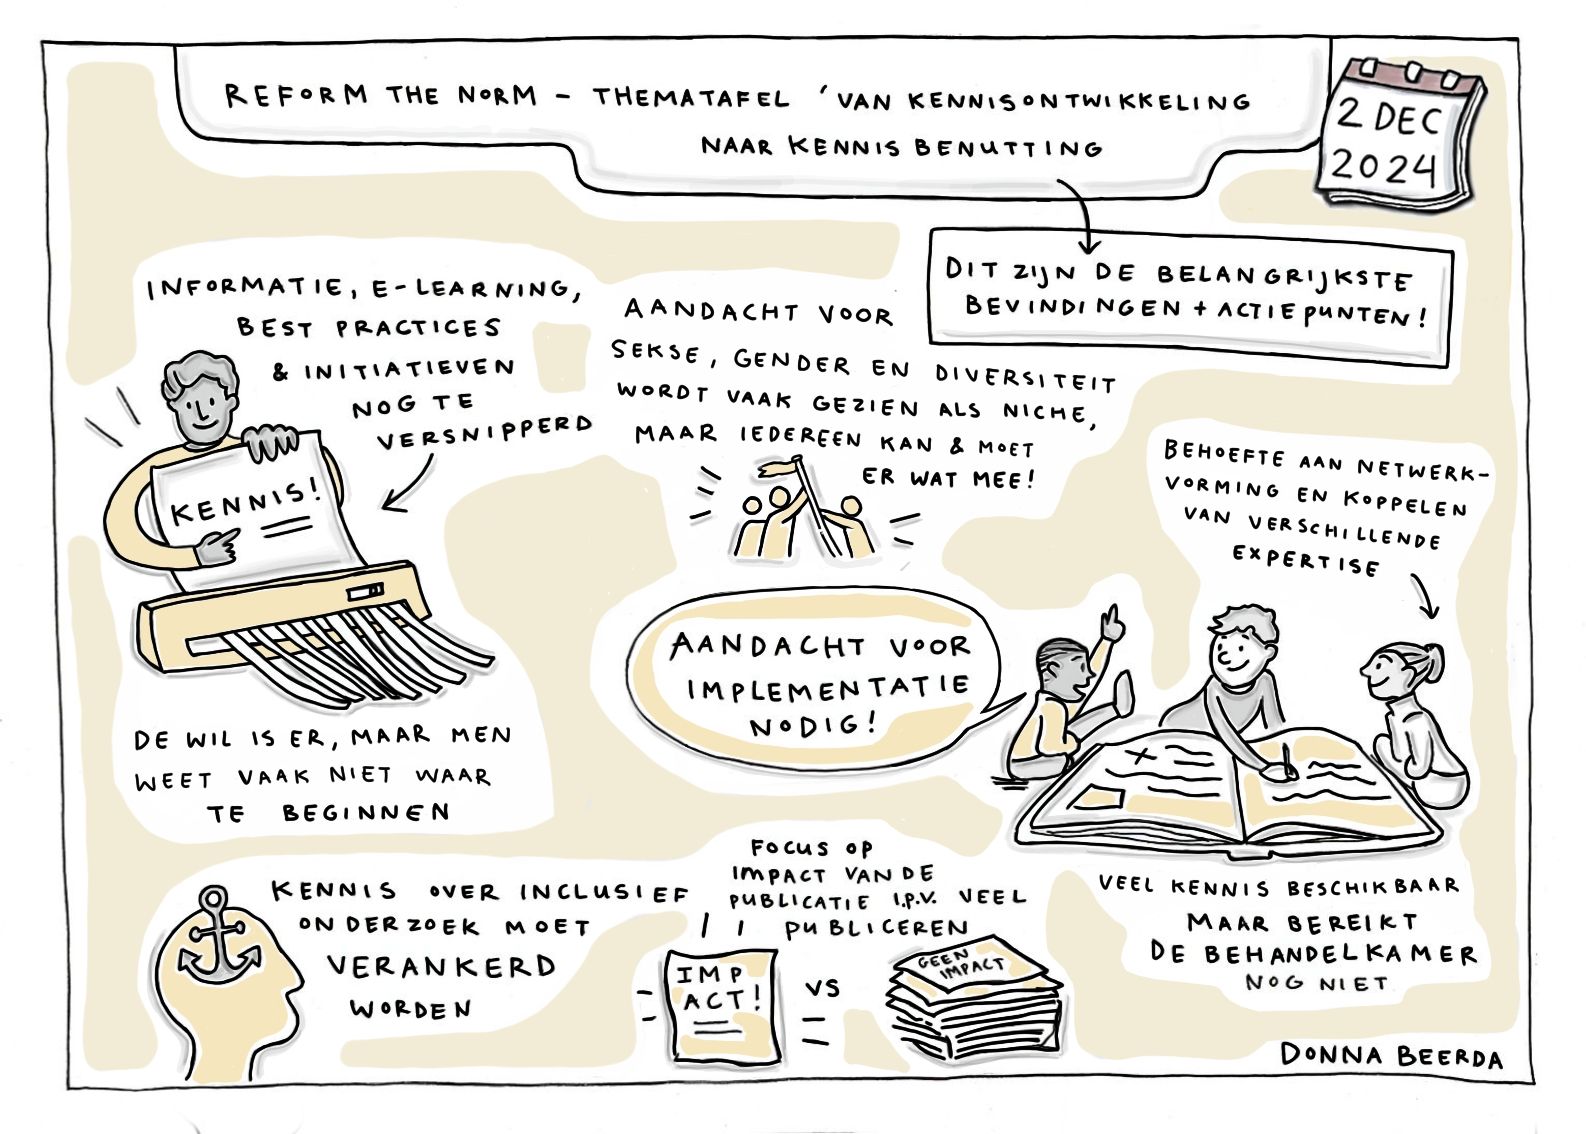 REFORM THE NORM – THEMATAFEL 'VAN KENNISONTWIKKELING
NAAR KENNIS BENUTTING
2 DEC
2024
DIT ZIJN DE BELANGRIJKSTE
BEVINDINGEN + ACTIEPUNTEN!
INFORMATIE, E-LEARNING,
BEST PRACTICES
& INITIATIEVEN
NOG TE
VERSNIPPERD
KENNIS!
DE WIL IS ER, MAAR MEN
WEET VAAK NIET WAAR
TE BEGINNEN
AANDACHT VOOR
SEKSE, GENDER EN DIVERSITEIT
WORDT VAAK GEZIEN ALS NICHE,
MAAR IEDEREEN KAN & MOET
ER WAT MEE!
BEHOEFTE AAN NETWERK-
VORMING EN KOPPELEN
VAN VERSCHILLENDE
EXPERTISE
AANDACHT VOOR
IMPLEMENTATIE
NODIG!
VEEL KENNIS BESCHIKBAAR
MAAR BEREIKT
DE BEHANDELKAMER
NOG NIET
KENNIS OVER INCLUSIEF
ONDERZOEK MOET
VERANKERD
WORDEN
FOCUS OP
IMPACT VAN DE
PUBLICATIE I.P.V. VEEL
PUBLICEREN
IMP
ACT!
VS
GEEN
IMPACT
DONNA BEERDA